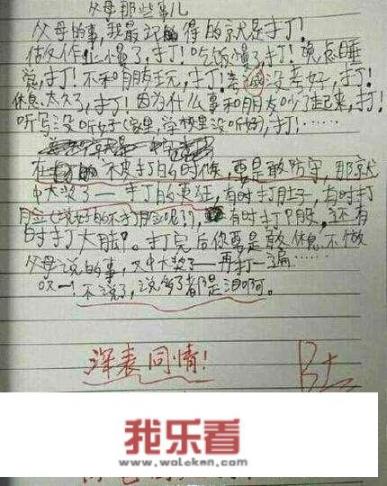 父母那些事儿
父母的事,我最记得的就是打!
做作业慢了,打!吃饭慢了打!晚点睡
觉,打!不和朋友玩,打!考没考好,打!
休息太久了,打!因为什么事和朋友吵了起来,打!
听写没听好(家里,学校里没听好,打!……
在被打的时候,要是敢防守,那就
中大奖了——打的更狂,有时打肚子,有时打
脸(说好的不打脸呢!),有时打P股,还有
时打大腿?。打完后你要是敢休息,不做
父母说的事,又中大奖了——再打一遍……
哎!不说了,说多了都是泪啊。
深表同情!
B+
我乐看
www.woleken.com